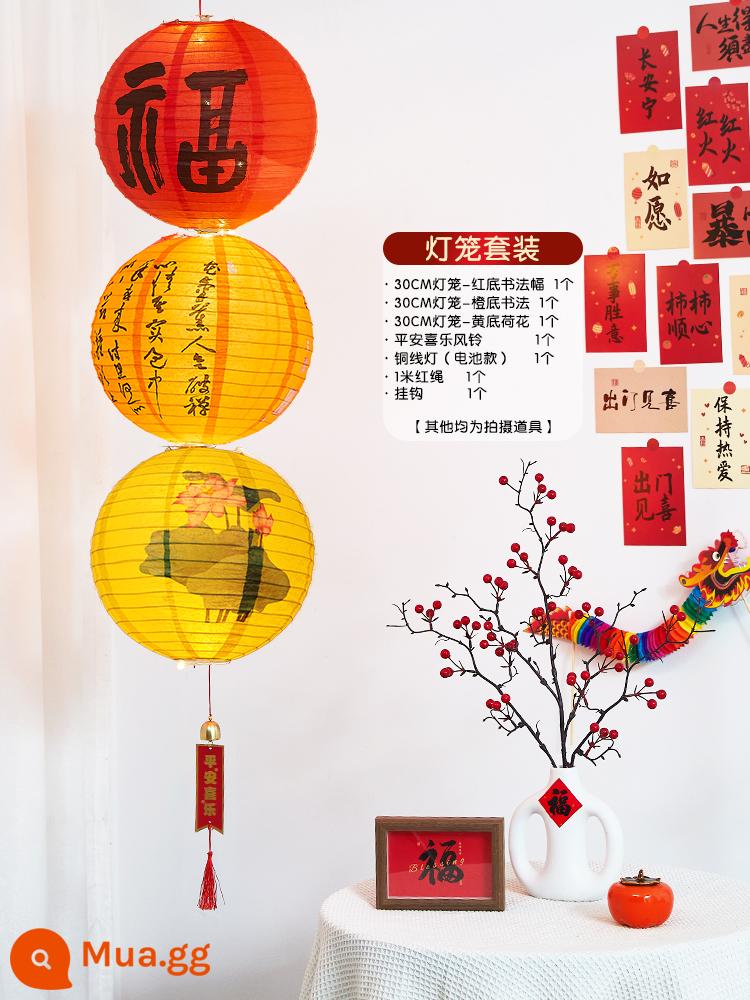 福
灯笼套装
· 30CM灯笼-红底书法幅 1个
· 30CM灯笼-橙底书法 1个
· 30CM灯笼-黄底荷花 1个
· 平安喜乐风铃 1个
· 铜线灯（电池款） 1个
· 1米红绳 1个
· 挂钩 1个
【 其他均为拍摄道具 】
人生得
须尽
长安宁
红火
红火
如愿
暴
万事胜意
柿柿
顺心
出门见喜
保持热爱
出门
见喜
平安喜乐
福
福
Blessing
Mua.gg